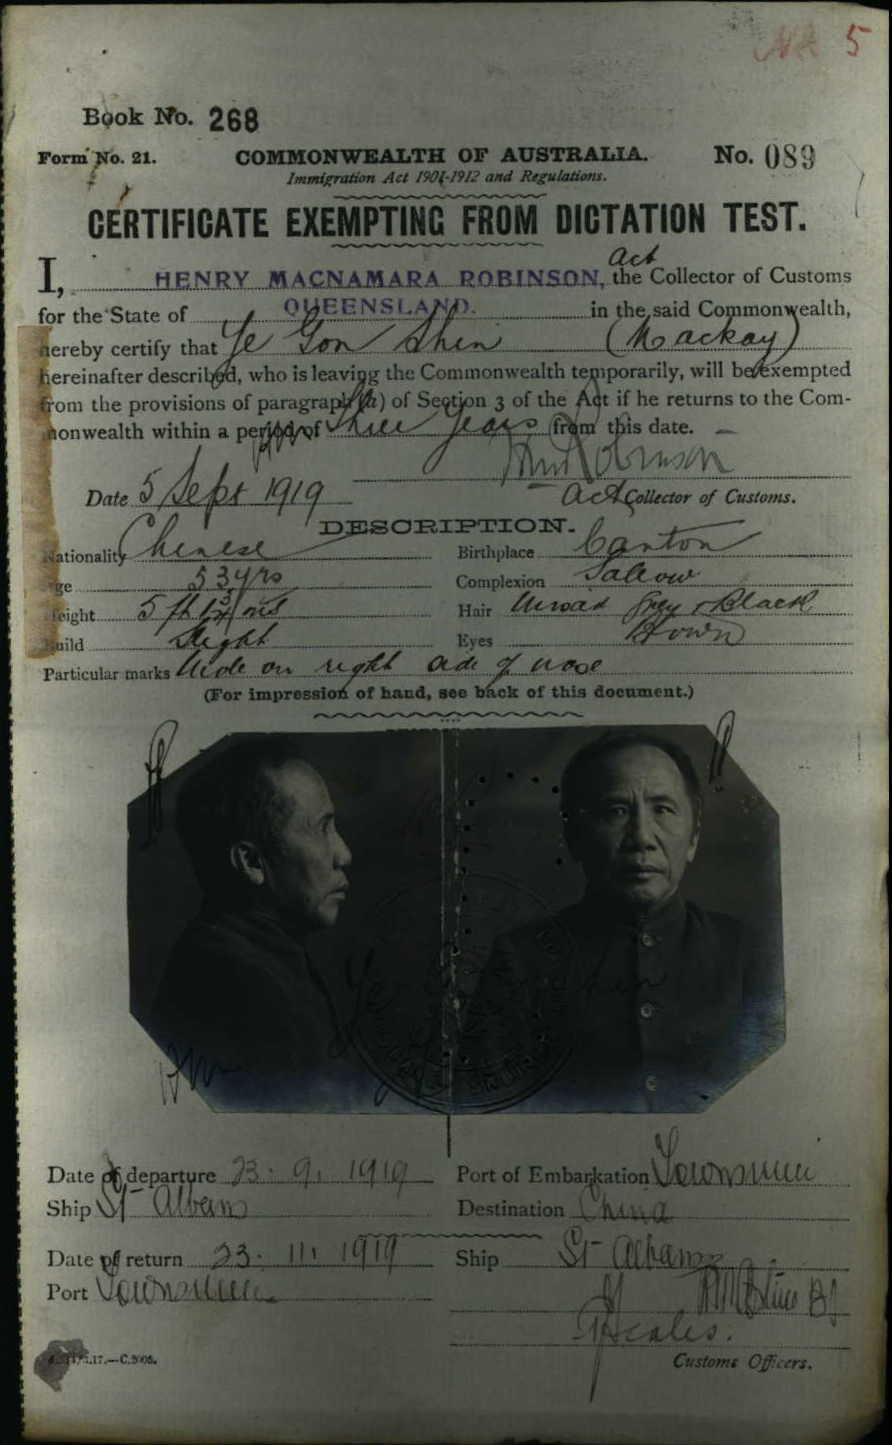 5
Book No. 268
Form No. 21. COMMONWEALTH OF AUSTRALIA. No. 089
Immigration Act 1901-1912 and Regulations.
CERTIFICATE EXEMPTING FROM DICTATION TEST.
Act
I, HENRY MACNAMARA ROBINSON, the Collector of Customs
for the State of QUEENSLAND. in the said Commonwealth,
hereby certify that Ye Gon Shin (Mackay)
hereinafter described, who is leaving the Commonwealth temporarily, will be exempted
from the provisions of paragraph (a) of Section 3 of the Act if he returns to the Com-
monwealth within a period of Three Years from this date.
Robinson
Date 5 Sept 1919 Act Collector of Customs.
DESCRIPTION.
Nationality Chinese Birthplace Canton
Age 53 yrs Complexion Sallow
Height 5 ft Hair Grey & Black
Build Slight Eyes Brown
Particular marks Mole on right side of nose
(For impression of hand, see back of this document.)
Date of departure 23. 9. 1919 Port of Embarkation Townsville
Ship St Albans Destination China
Date of return 23. 11. 1919 Ship St Albans
Port Townsville
Customs Officers.